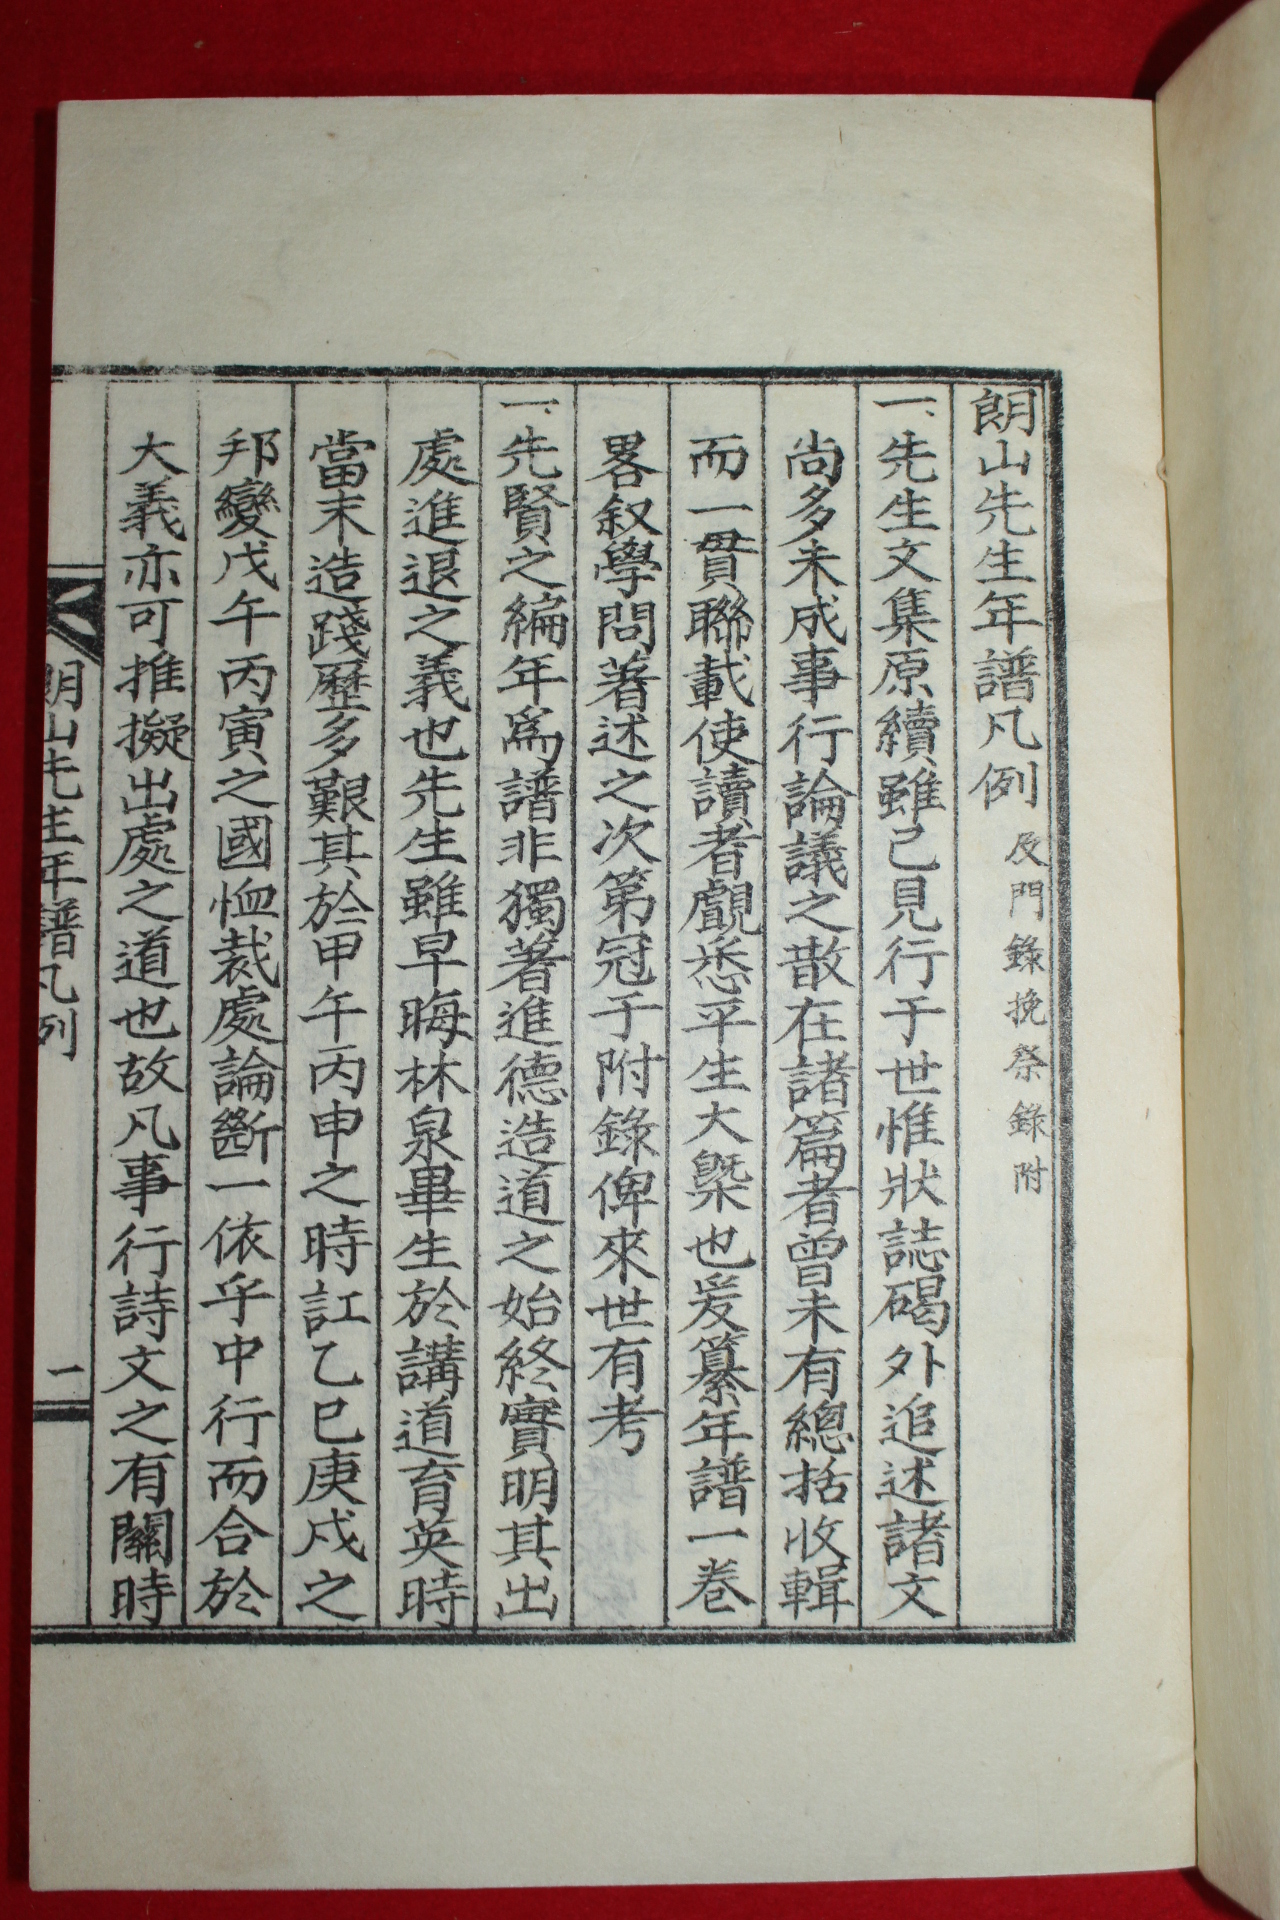 朗山先生年譜凡例 及門錄挽祭錄附
一. 先生文集原續雖己見行于世惟狀誌碣外追述諸文
尙多未成事行論議之散在諸篇者曾未有總括收輯
而一貫聯載使讀者覰悉平生大槩也爰纂年譜一卷
畧叙學問著述之次第冠于附錄俾來世有考
一. 先賢之編年爲譜非獨著進德造道之始終實明其出
處進退之義也先生雖早晦林泉畢生於講道育英時
當末造踐歷多艱其於甲午丙申之時訌乙巳庚戌之
邦變戊午丙寅之國恤裁處論斷一依乎中行而合於
大義亦可推擬出處之道也故凡事行詩文之有關時
朗山先生年譜凡例 一